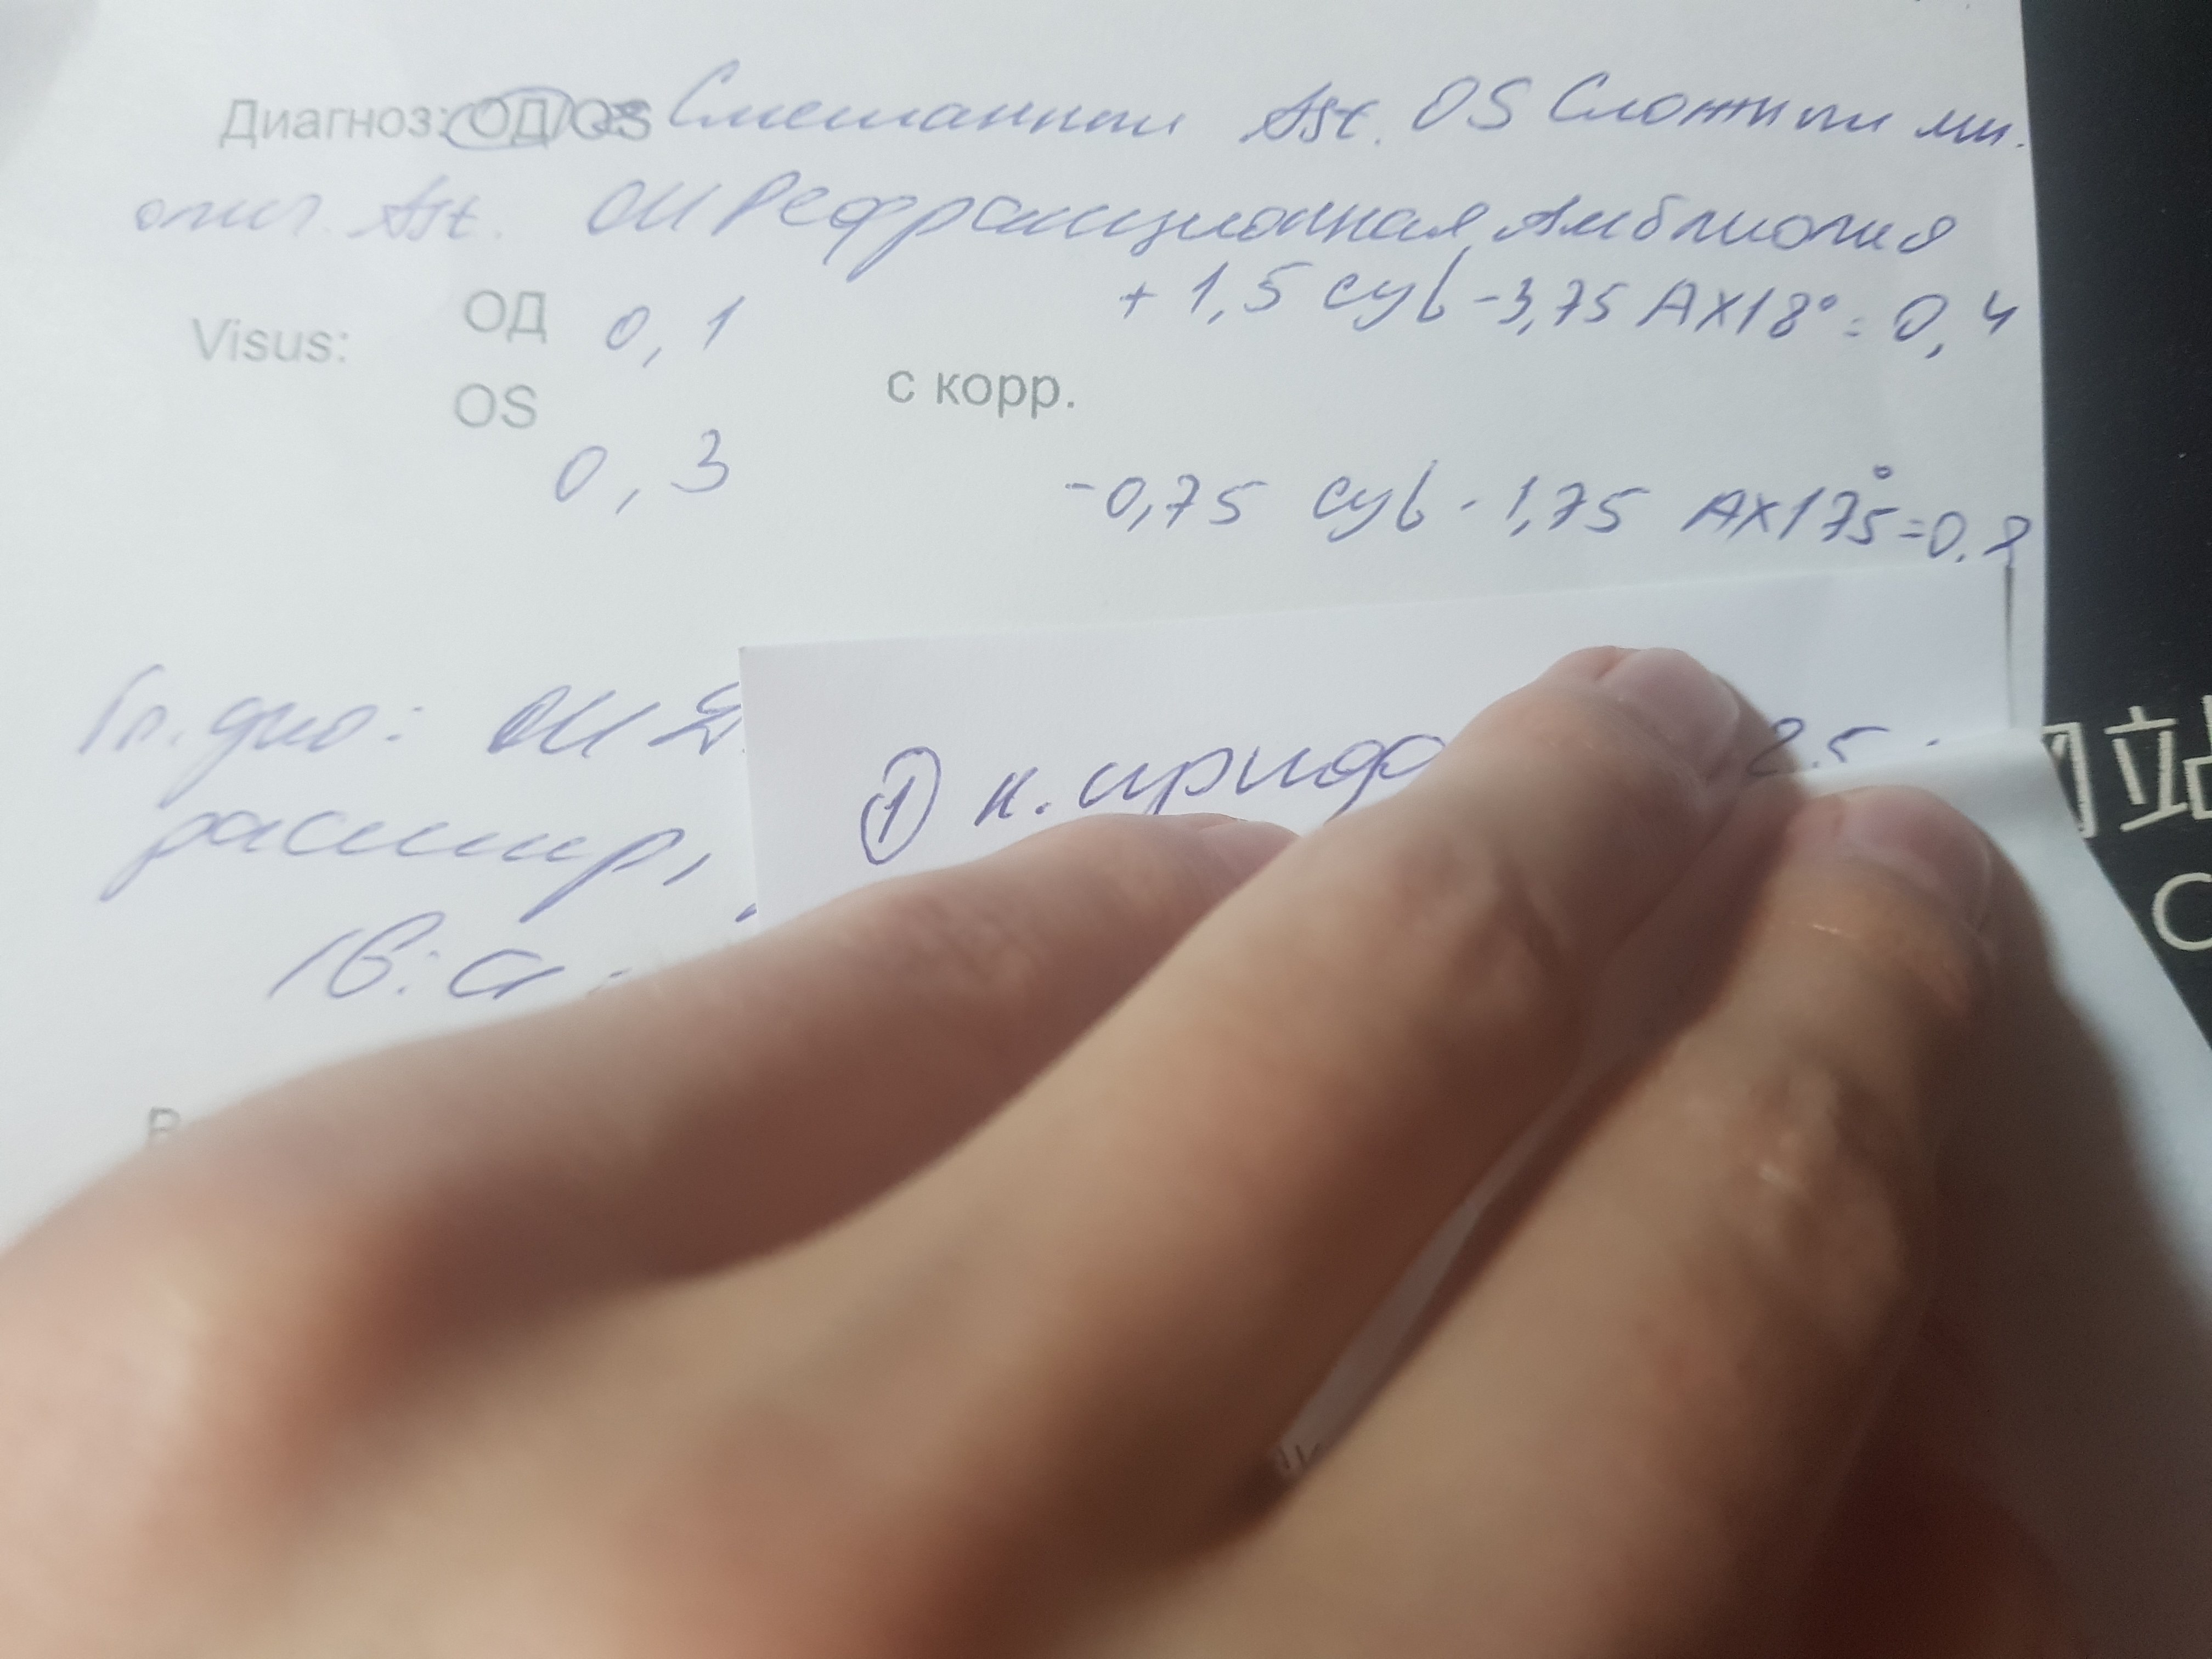 Диагноз: ОД/OS Смешанный Ast. OS Сложный ми.
опич. Ast. OU Рефракционная Амблиопия
Visus: ОД 0,1 с корр. +1,5 cyl -3,75 AX18° = 0,4
OS 0,3 -0,75 cyl -1,75 AX175° = 0.8
Гл. дно: OU
① к. ириф 2.5
расшир,
站
C